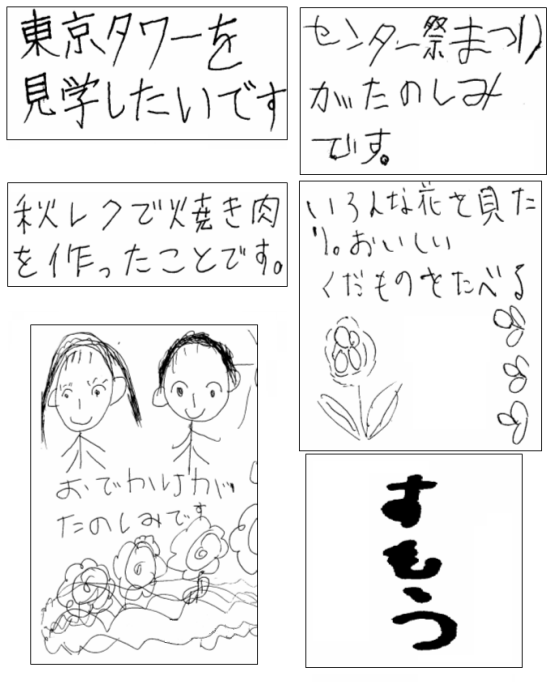 東京タワーを
見学したいです
センター祭まつり
がたのしみ
です。
秋レクで焼き肉
を作ったことです。
いろんな花を見た
り。おいしい
くだものをたべる
おでかけが
たのしみです
すもう